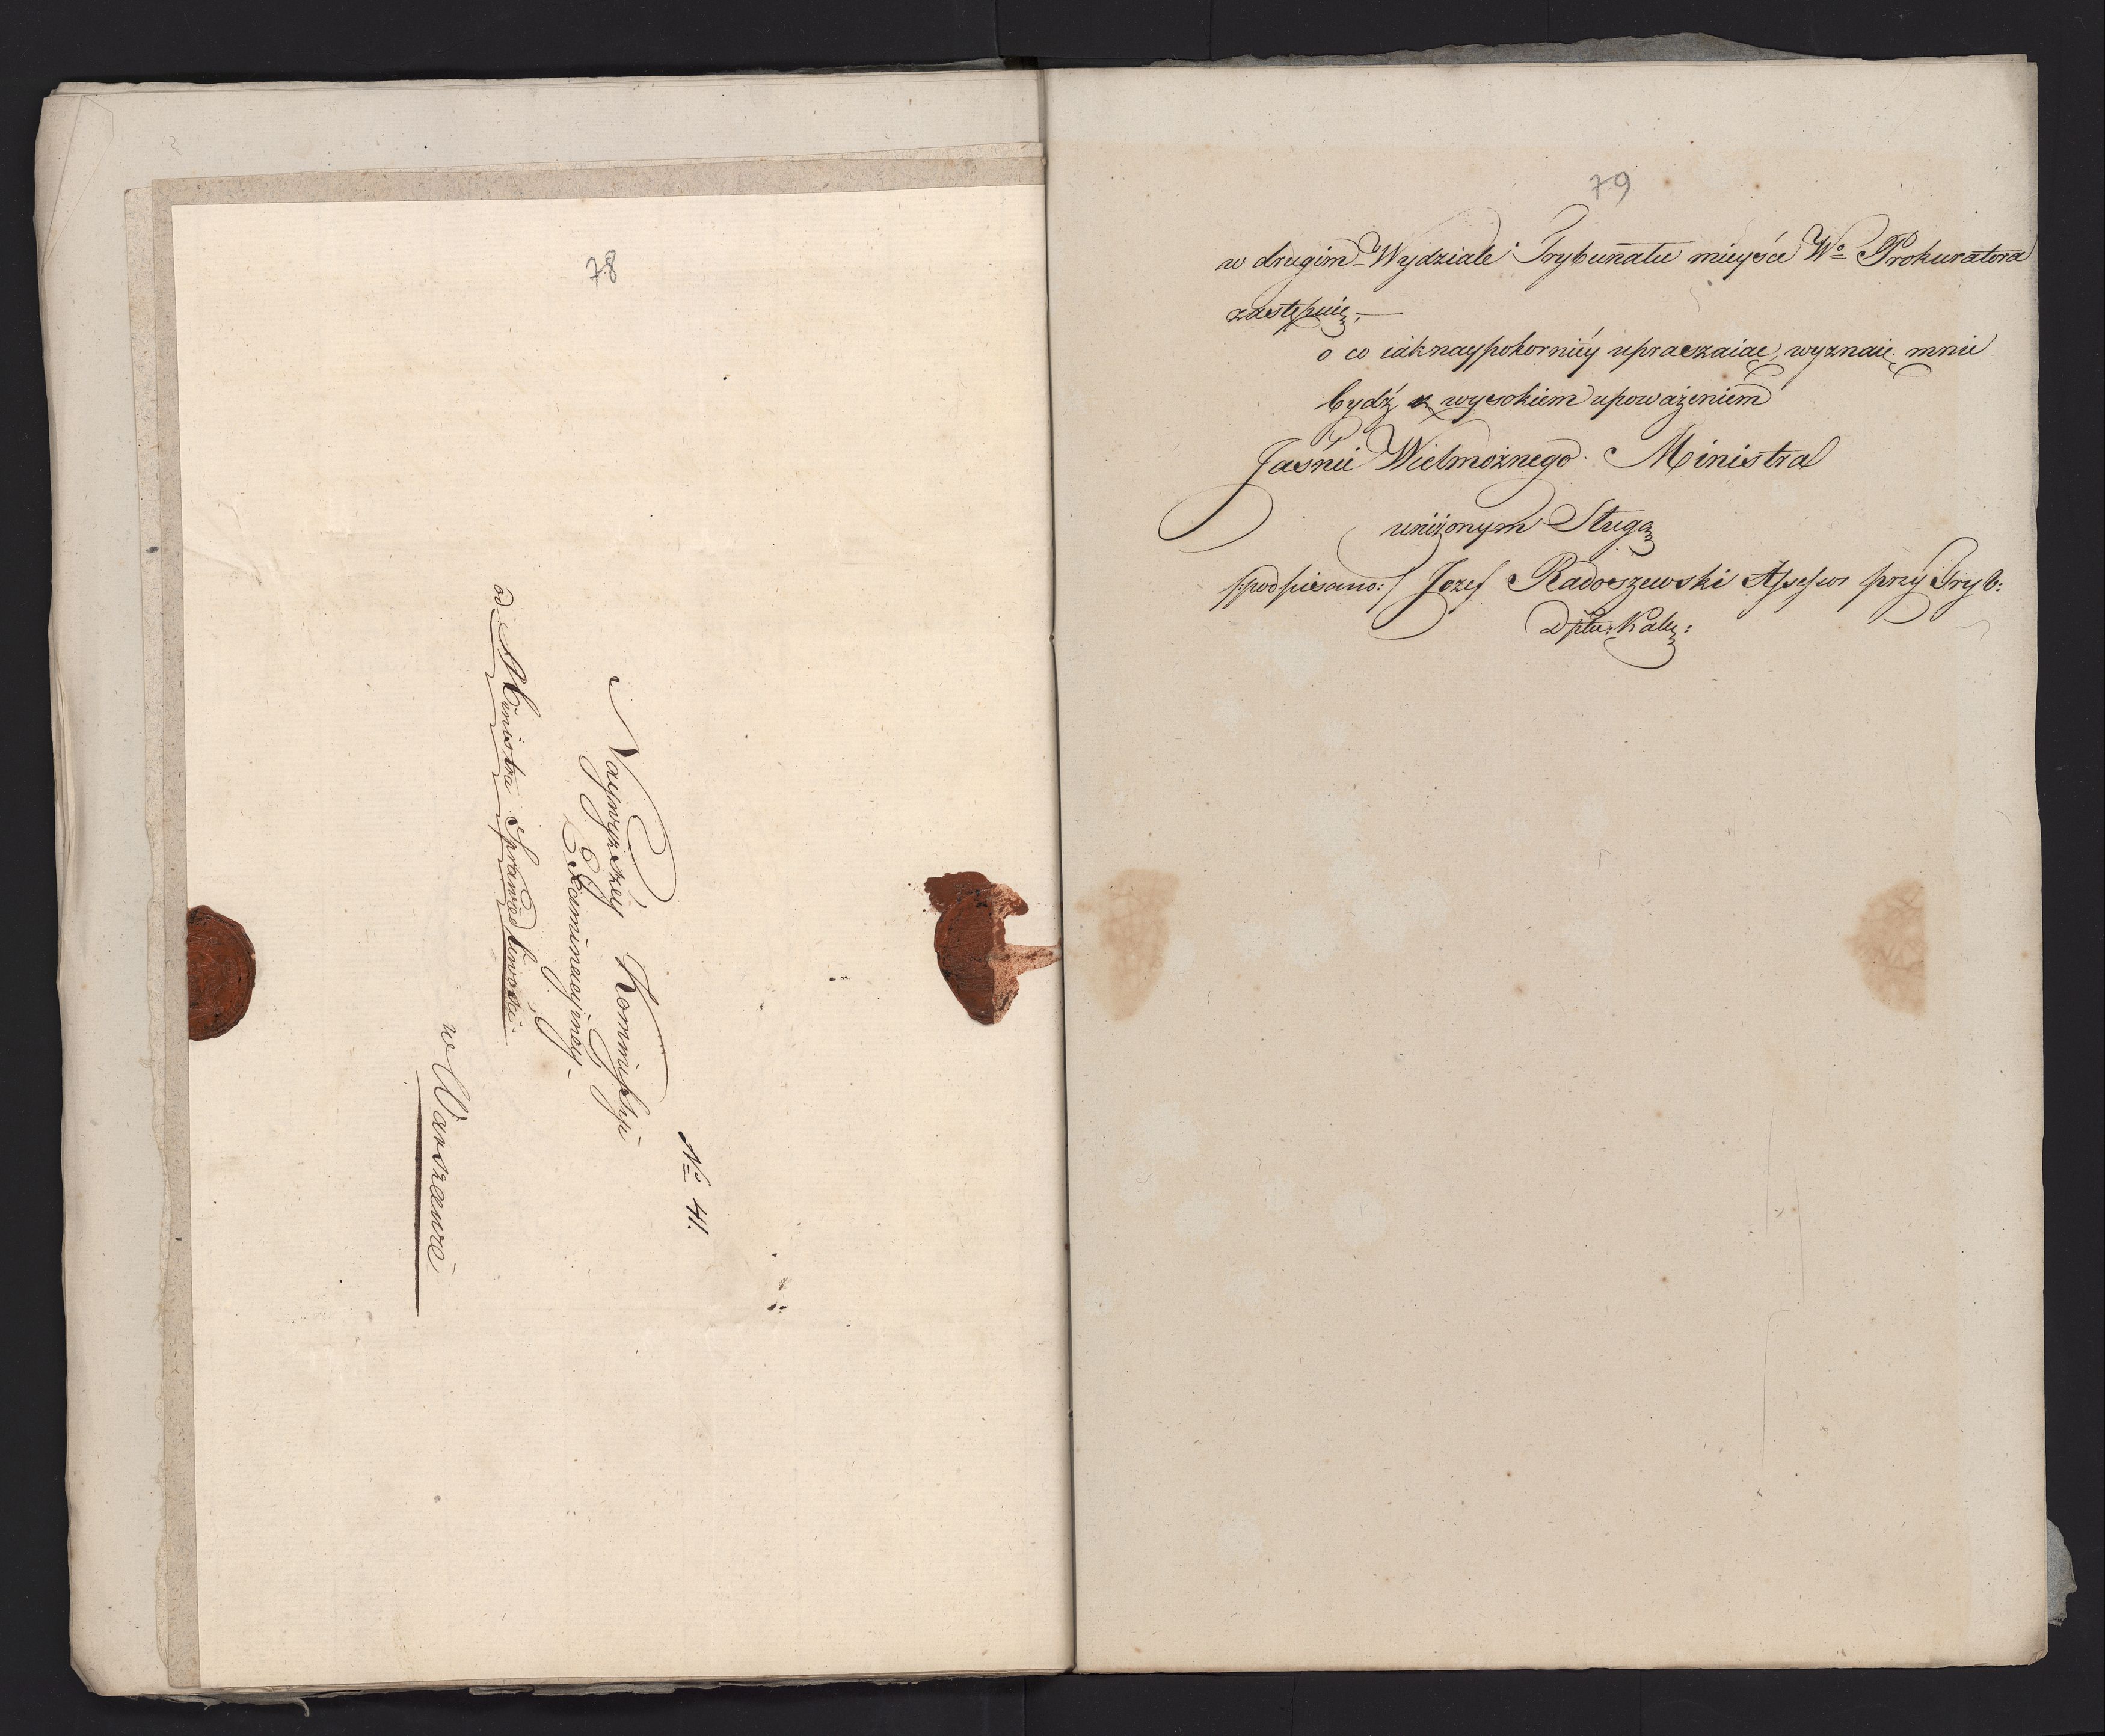 78
№ 41.
Naywyzszéy Kommissyi
Examinacyjney
od Ministra Sprawiedliwości
w Warszawie
79
w drugim Wydziale Trybunału mieysce Wo Prokuratora
zastępuię,
o co iaknaypokorniéy upraszaiąc, wyznaię mnie
bydź z wysokiem upoważeniem
Jaśnie Wielmożnego Ministra
uniżonym Sługą
/:podpisano:/ Jozef Radoszewski Assessor przy Tryb:
Dptu: Kali: